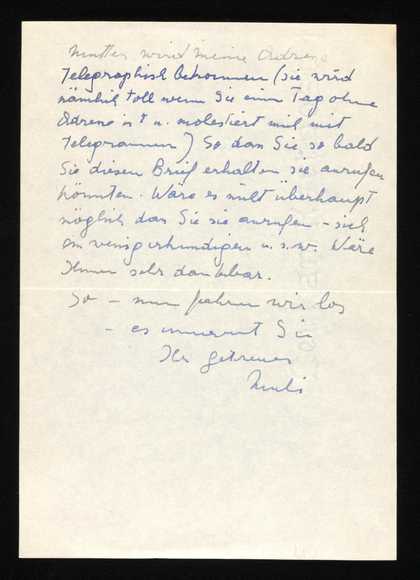 Mutter wird meine Adresse
telegraphisch bekommen (sie wird
nämlich toll wenn Sie einen Tag ohne
Adresse ist u. molestiert mich mit
Telegrammen) So dass Sie so bald
Sie diesen Brief erhalten sie anrufen
könnten. Wäre es nicht überhaupt
möglich dass Sie sie anrufen – sich
ein wenig erkundigen u.s.w. Wäre
Ihnen sehr dankbar.
So – nun fahren wir los
– es umarmt Sie
Ihr getreuer